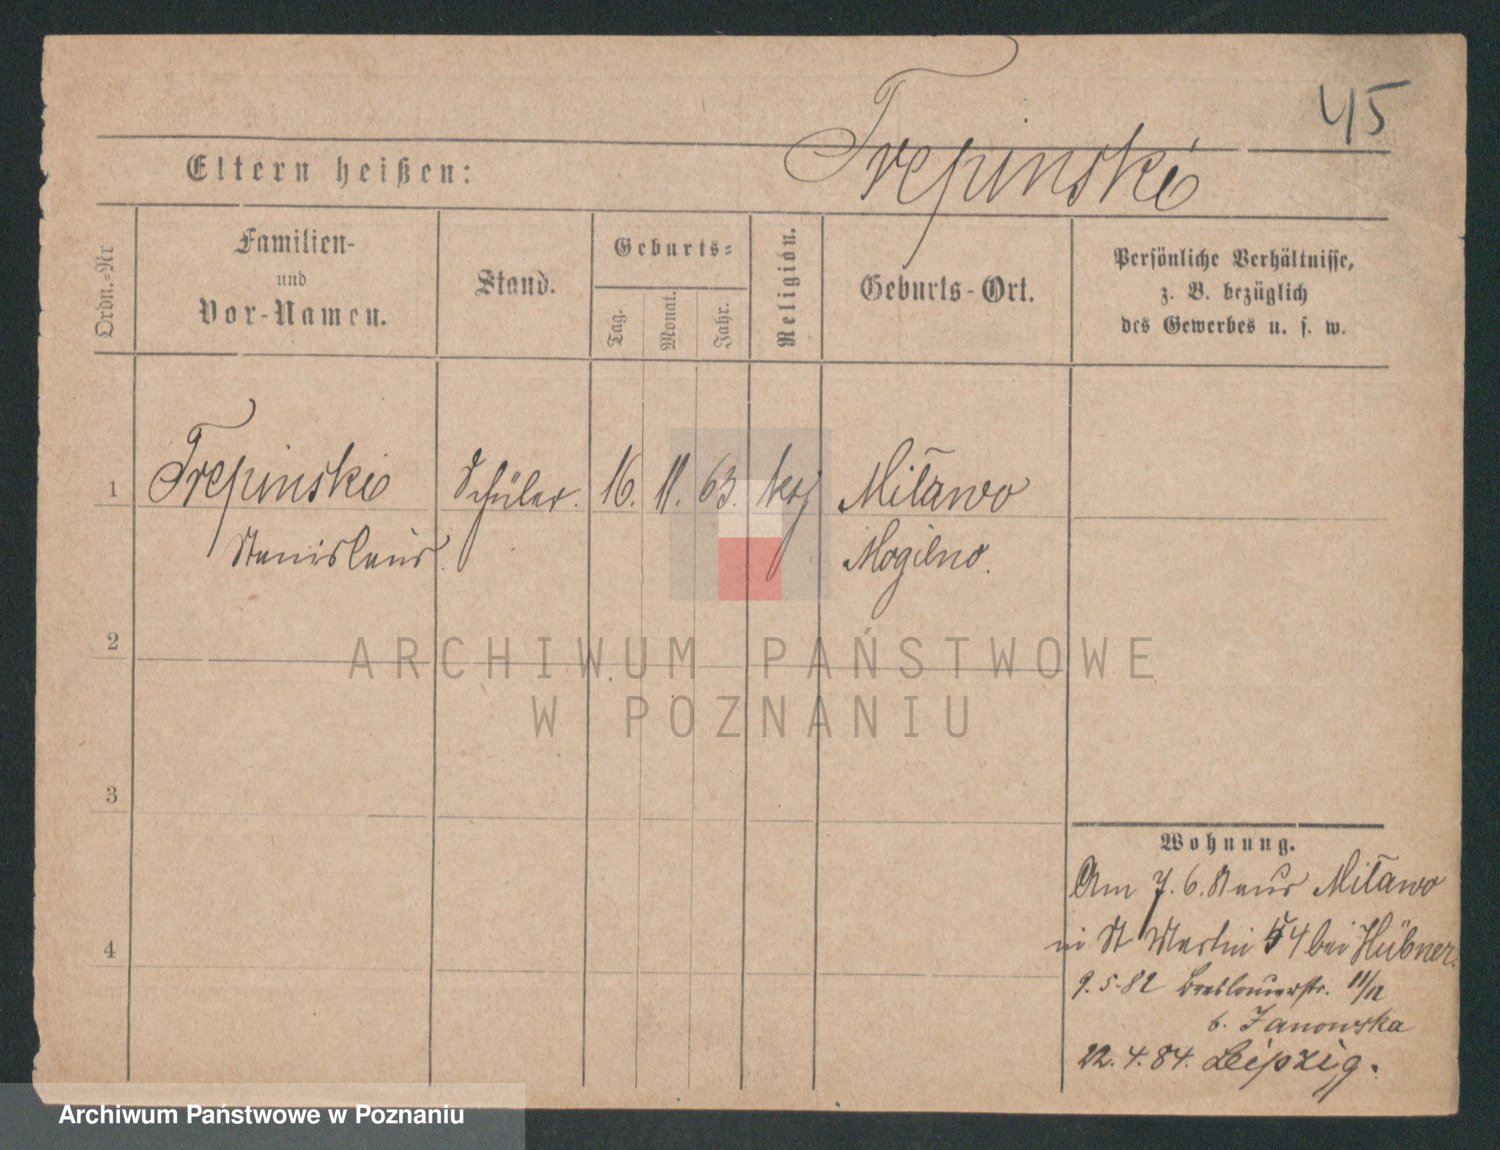 45
Trepinski
Eltern heißen:
Ordn.-Nr
Familien-
und
Vor-Namen.
Stand.
Geburts-
Tag.
Monat.
Jahr.
Religion.
Geburts-Ort.
Persönliche Verhältnisse,
z. B. bezüglich
des Gewerbes u. s. w.
1 Trepinski Schüler. 16. 11. 63. Milawo
Stanislaus. Mogilno.
2
ARCHIWUM PAŃSTWOWE
W POZNANIU
3
Wohnung.
Am 7. 6. aus Milawo
4
in St Martin 54 bei Hübner.
9. 5. 82 Breslauerstr. 11/12
b. Janowska
22. 4. 84. Leipzig.
Archiwum Państwowe w Poznaniu